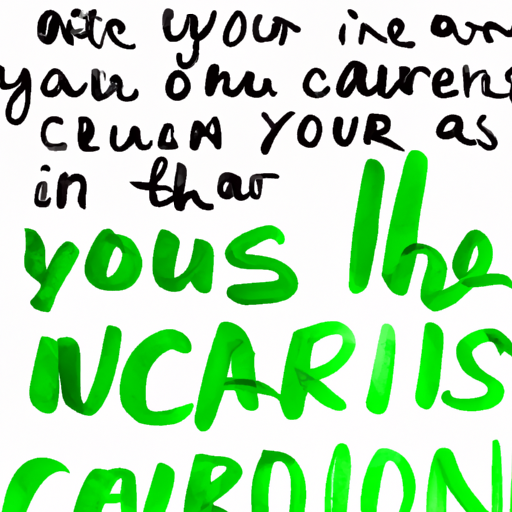 your in e an
yau onu caurens
CEUAN YOUR as
in thar
yous lhe
NCARIIS
CAIRDION